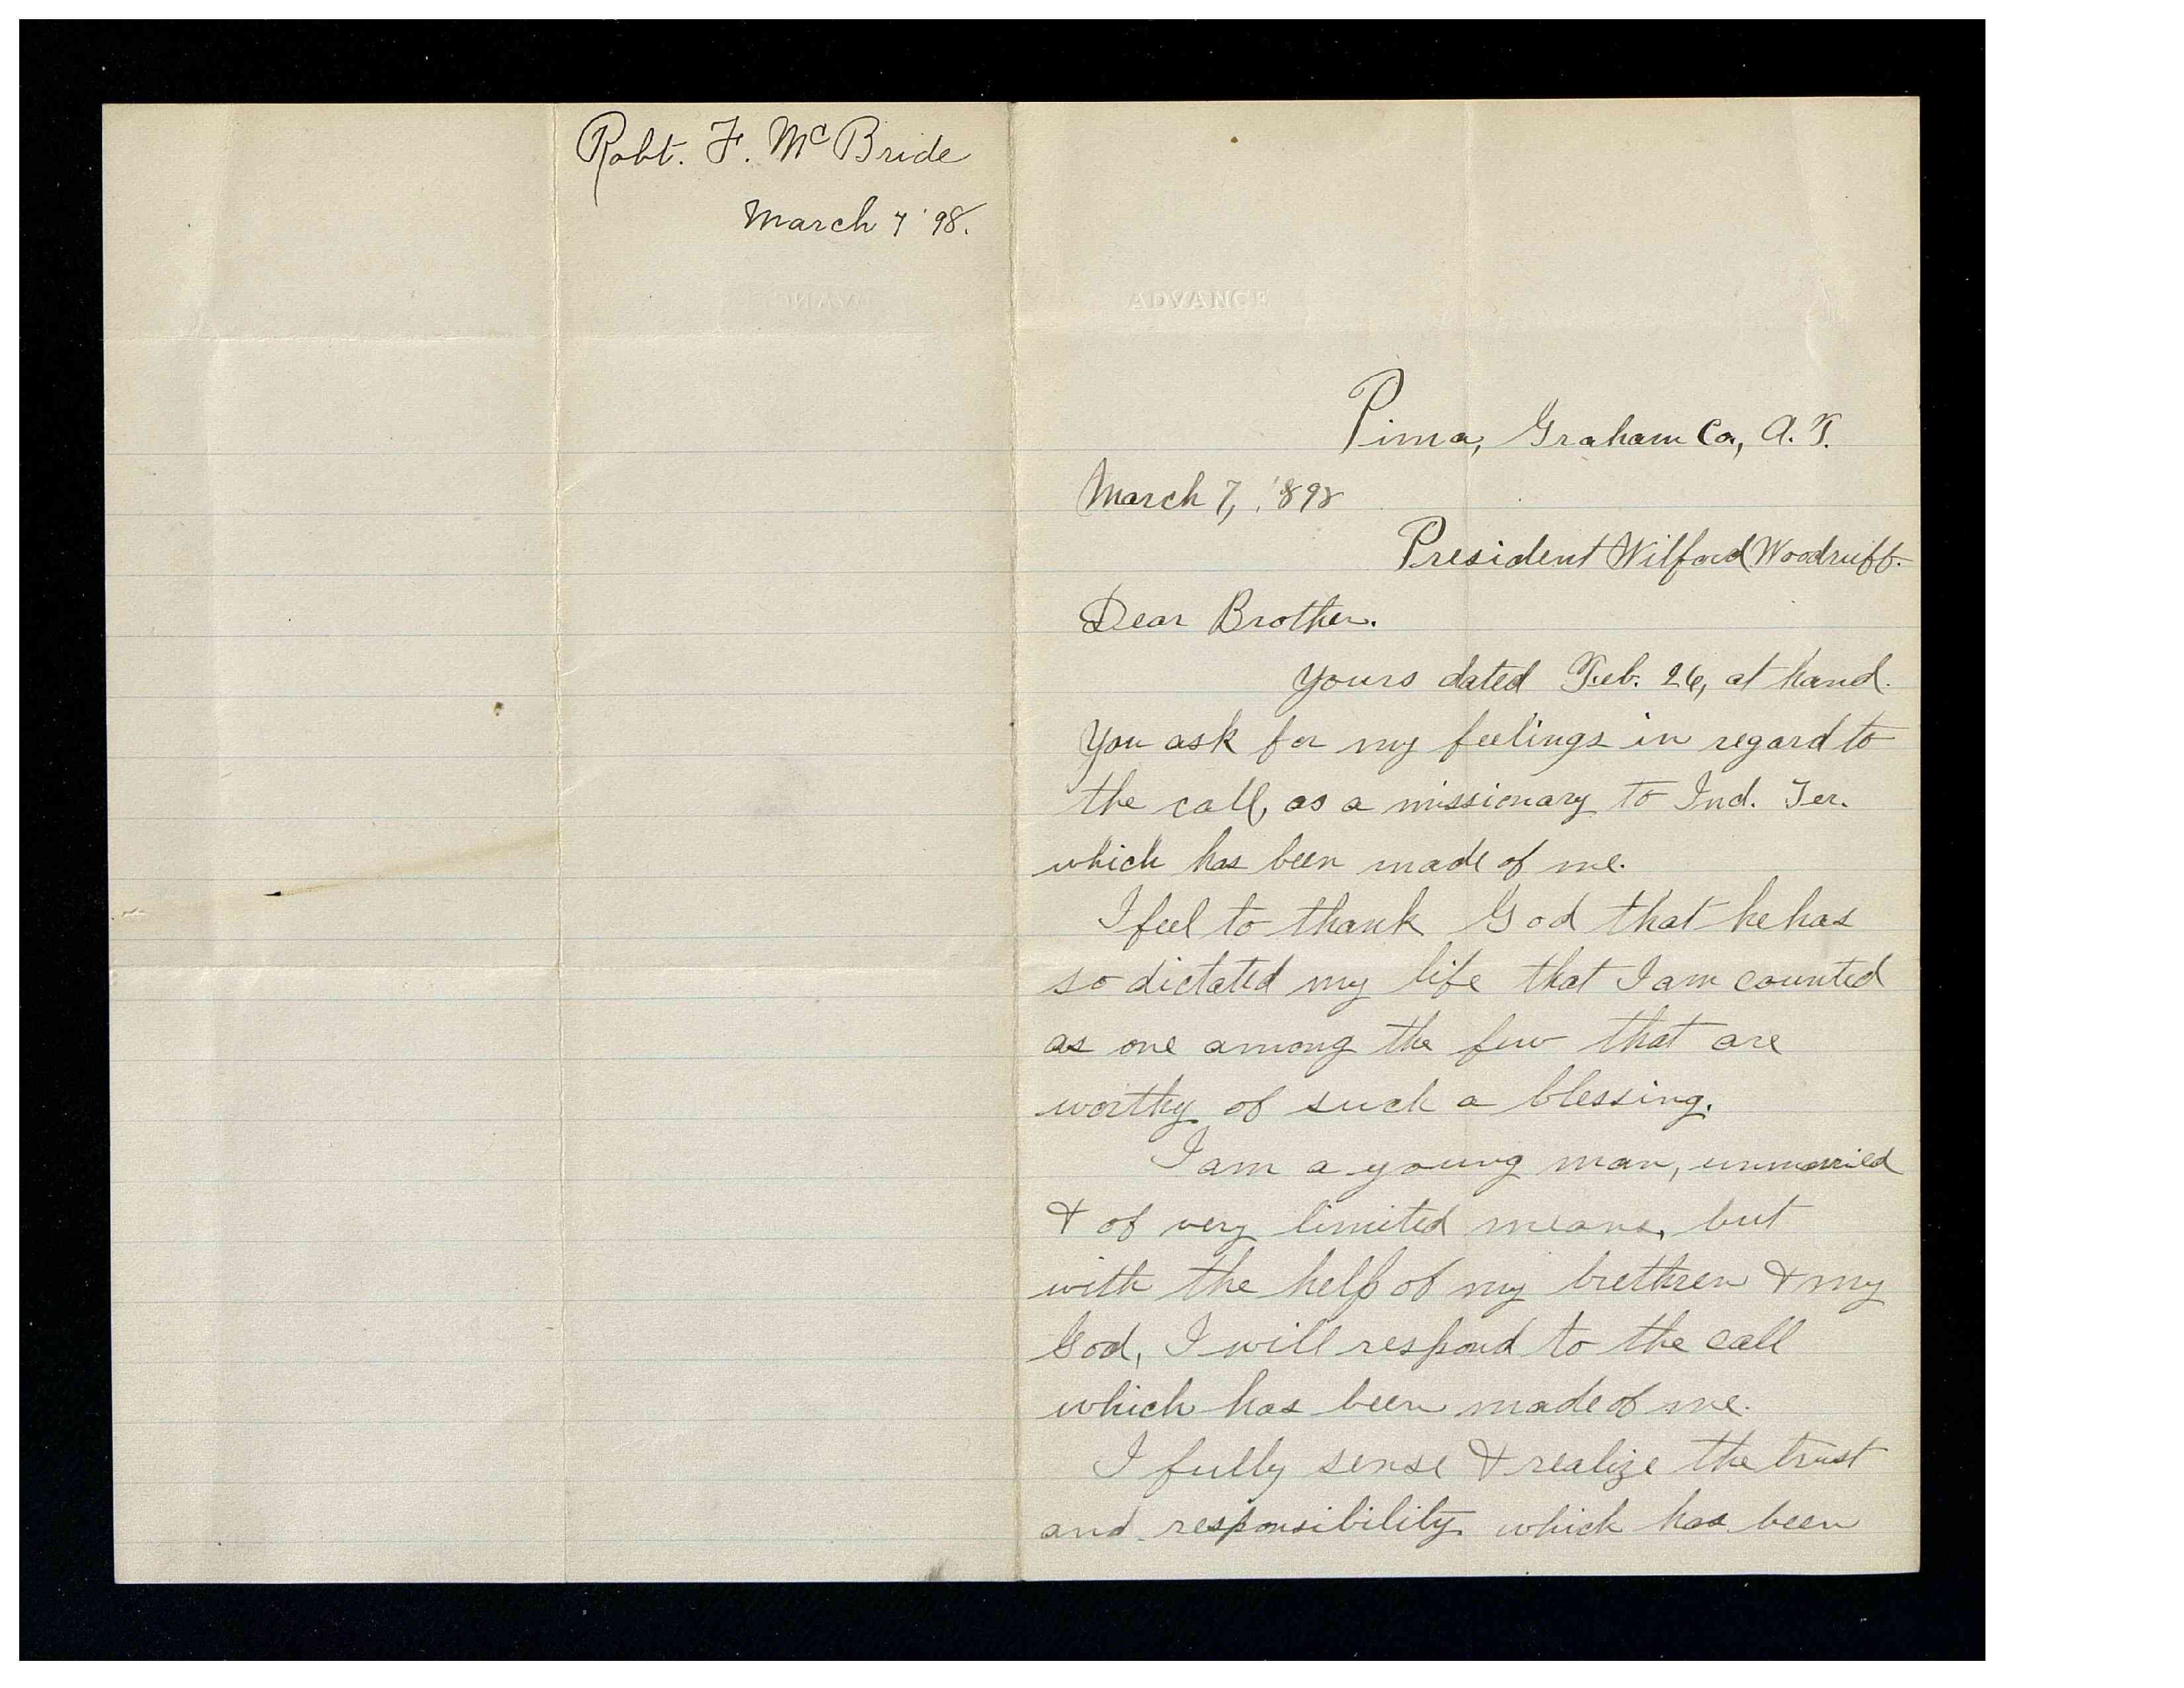 Robt. F. McBride
March 7 '98.
ADVANCE
Pima, Graham Co, A. T.
March 7, 1898
President Wilford Woodruff.
Dear Brother.
Yours dated Feb. 26, at hand.
You ask for my feelings in regard to
the call, as a missionary to Ind. Ter.
which has been made of me.
I feel to thank God that he has
so dictated my life that I am counted
as one among the few that are
worthy of such a blessing.
I am a young man, unmarried
& of very limited means, but
with the help of my brethren & my
God, I will respond to the call
which has been made of me.
I fully sense & realize the trust
and responsibility which has been